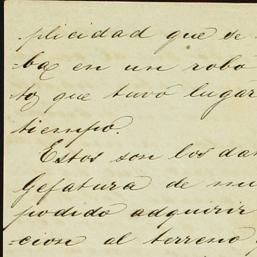 plicidad que se
-ba en un robo
to, que tuvo lugar
tiempo.
Estos son los da
Gefatura de mi
podido adquirir
-cion al terreno